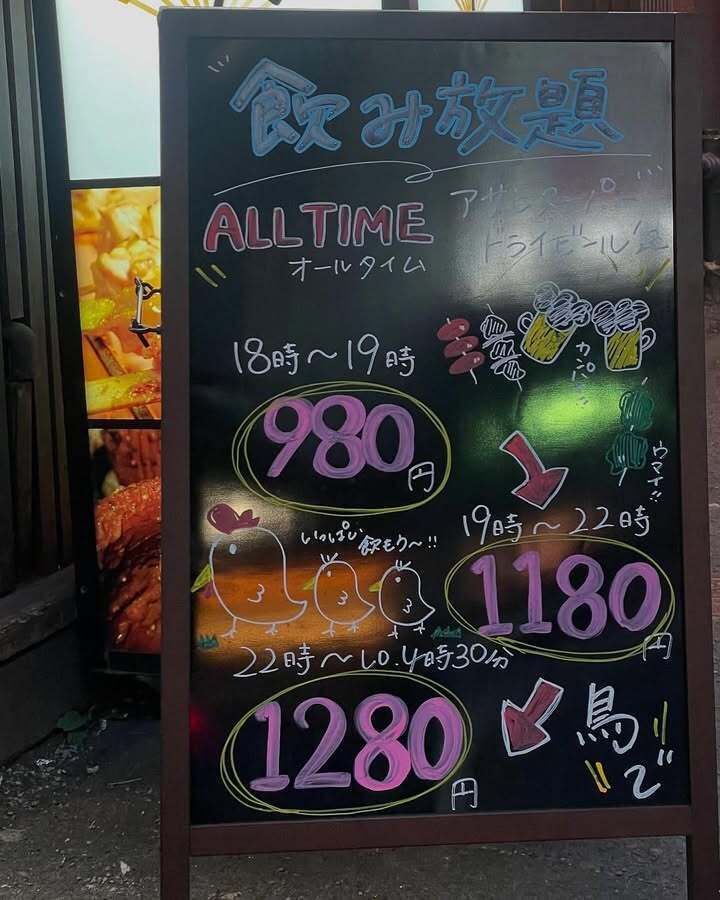 飲み放題
ALLTIME
オールタイム
アサヒスーパー
ドライビール
18時～19時
980円
カンパーイ
ウマイ!!
19時～22時
1180円
いっぱい
飲もり～!!
22時～LO.4時30分
1280円
鳥